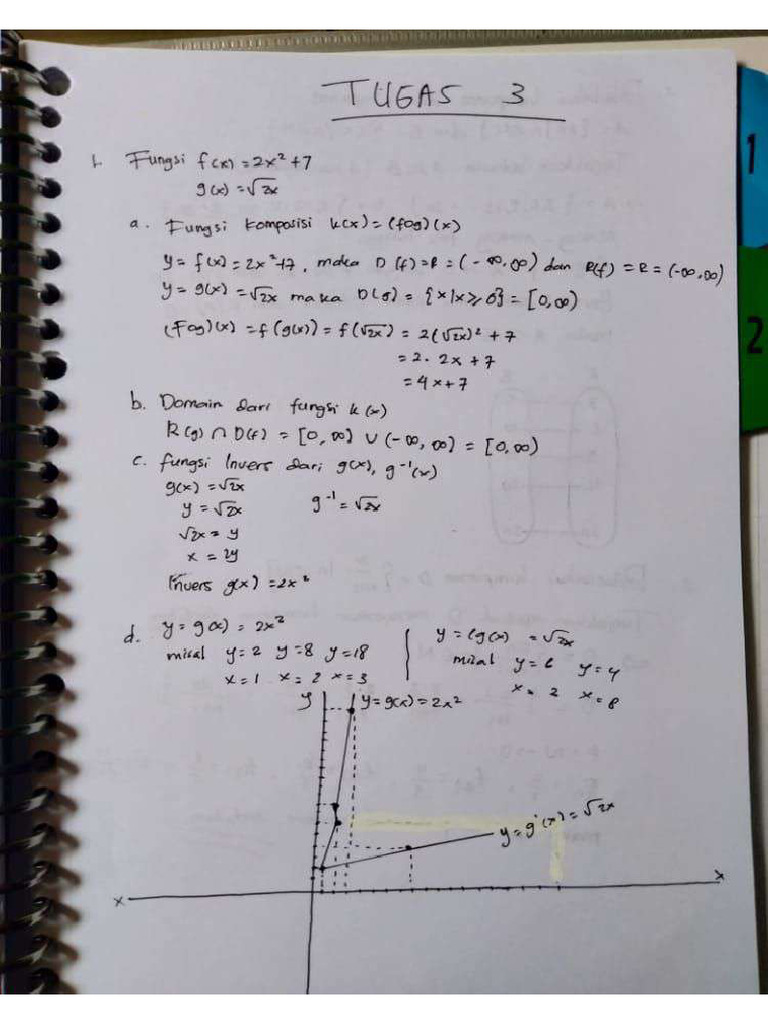 TUGAS 3
1. Fungsi f(x) = 2x² + 7
g(x) = √2x
a. Fungsi Komposisi k(x) = (fog)(x)
y = f(x) = 2x² + 7, maka D(f) = R = (-∞, ∞) dan R(f) = R = (-∞, ∞)
y = g(x) = √2x maka D(g) = {x | x ≥ 0} = [0, ∞)
(Fog)(x) = f(g(x)) = f(√2x) = 2(√2x)² + 7
= 2. 2x + 7
= 4x + 7
b. Domain dari fungsi k(x)
R(g) ∩ D(f) = [0, ∞] ∪ (-∞, ∞) = [0, ∞)
c. fungsi Invers dari g(x), g⁻¹(x)
g(x) = √2x
y = √2x g⁻¹ = √2x
√2x = y
x = 2y
Invers g(x) = 2x²
d. y = g(x) = 2x² y = (g(x) = √2x
misal y=2 y=8 y=18 misal y= y=4
x=1 x=2 x=3 x=2 x=8
y y=g(x)=2x²
y=g'(x)=√2x
x x
1
2